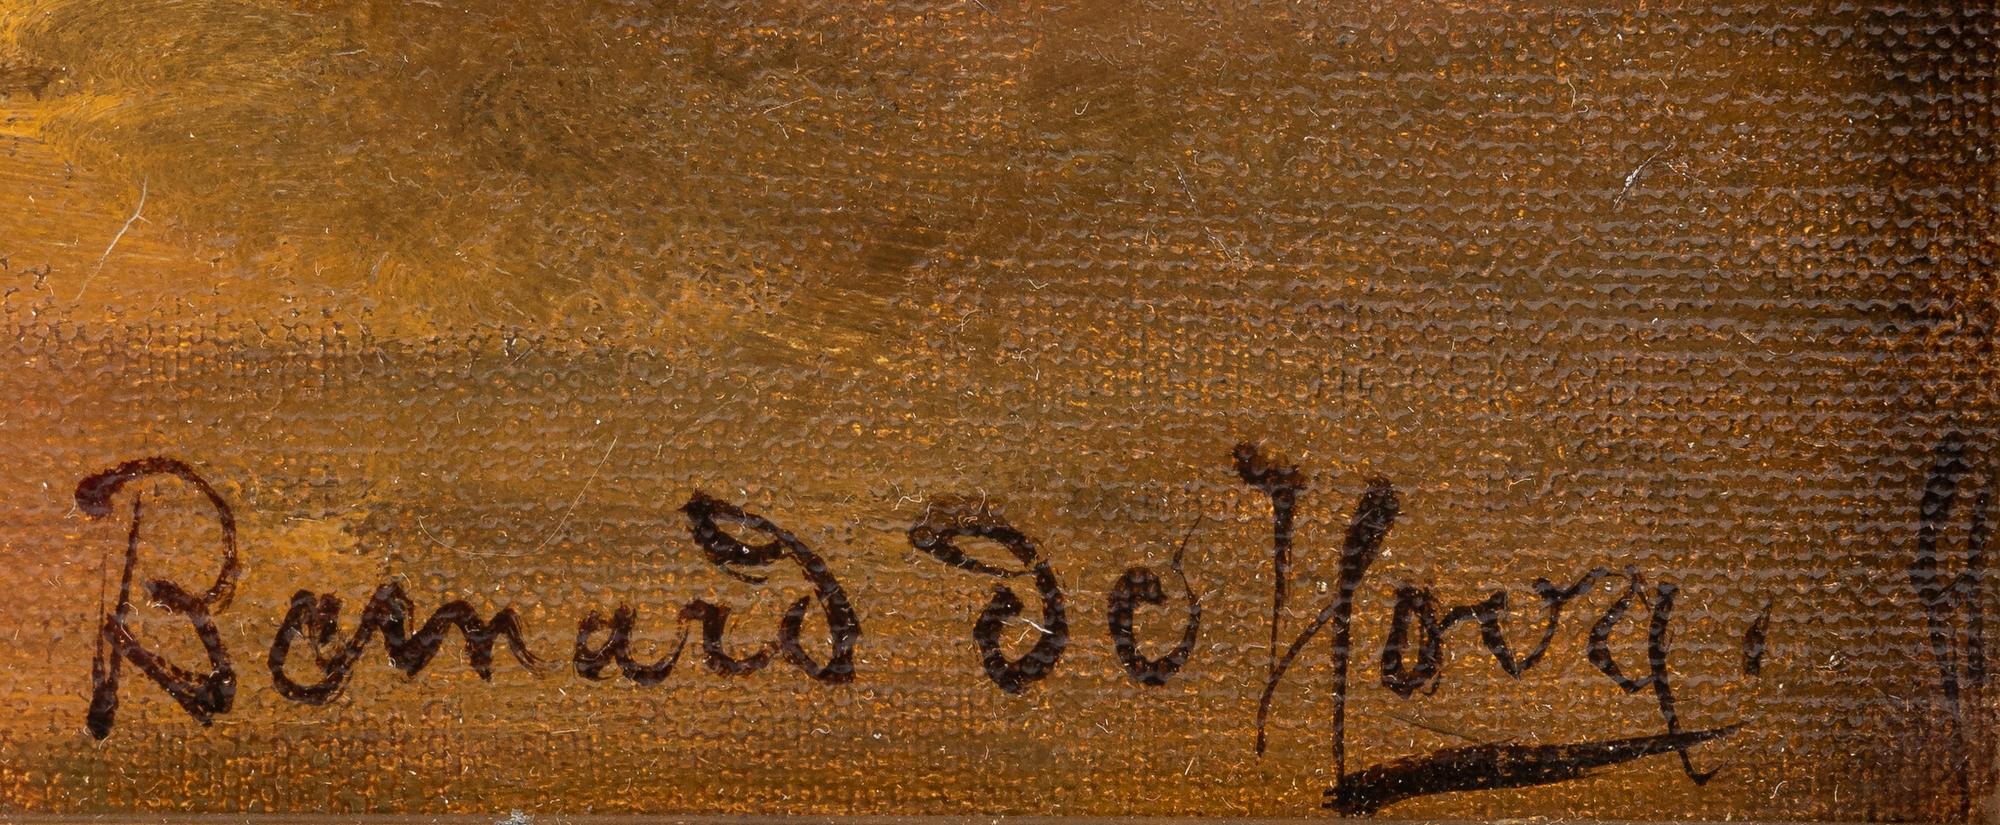 Bernard de Hoog.